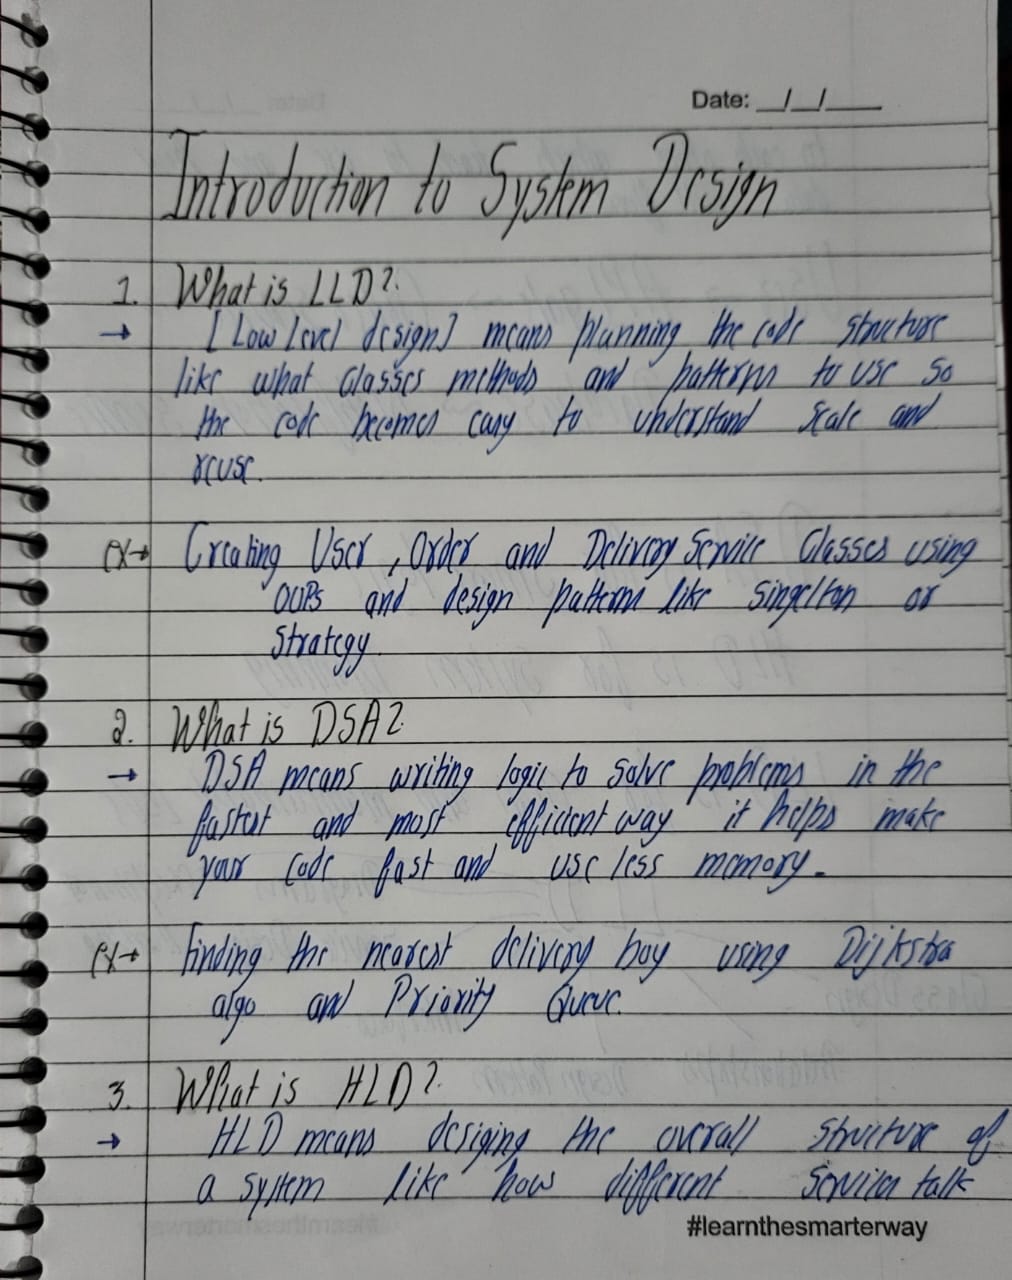 Date: __/__/____
Introduction to System Design
1. What is LLD?
→ [Low level design] means planning the code structure
like what Classes methods and patterns to use so
the code becomes easy to understand scale and
reuse.
ex→ Creating User, Order and Delivery Service Classes using
OOPs and design patterns like Singelton or
Strategy.
2. What is DSA?
→ DSA means writing logic to solve problems in the
fastest and most efficient way it helps make
your code fast and use less memory.
ex→ finding the nearest delivery boy using Dijkstra
algo and Priority Queue.
3. What is HLD?
→ HLD means desiging the overall structure of
a system like how different services talk
#learnthesmarterway